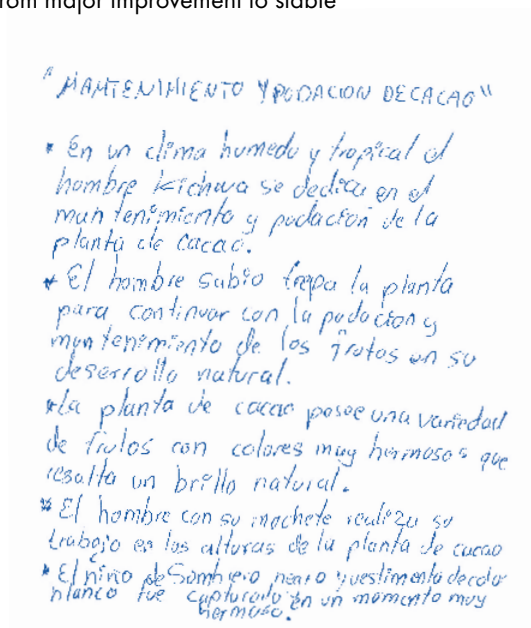 from major improvement to stable
"MANTENIMIENTO Y PODACION DE CACAO"
* En un clima humedo y tropical el
hombre kichwa se dedica en el
mantenimiento y podación de la
planta de cacao.
* El hombre sabio trepa la planta
para continuar con la podacion y
mantenimiento de los frutos en su
deserrollo natural.
*La planta de cacao posee una variedad
de frutos con colores muy hermosos que
resalta un brillo natural.
* El hombre con su machete realiza su
trabajo en las alturas de la planta de cacao
* El niño de Sombrero negro y vestimenta de color
blanco fue capturado en un momento muy
hermoso.